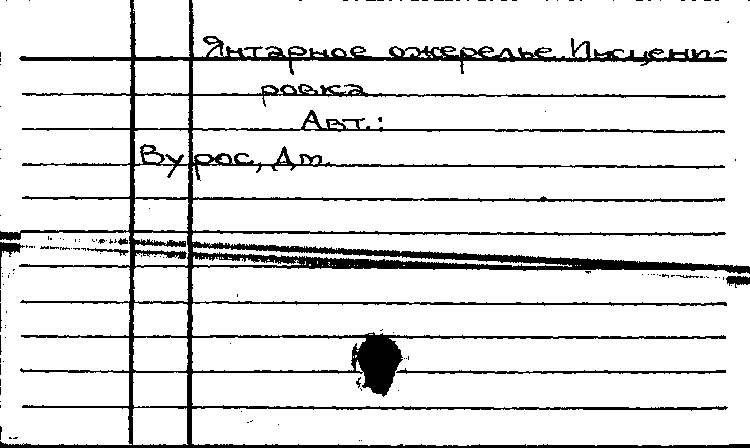 Янтарное ожерелье. Инсцени-
ровка
Авт.:
Вурос, Дм.